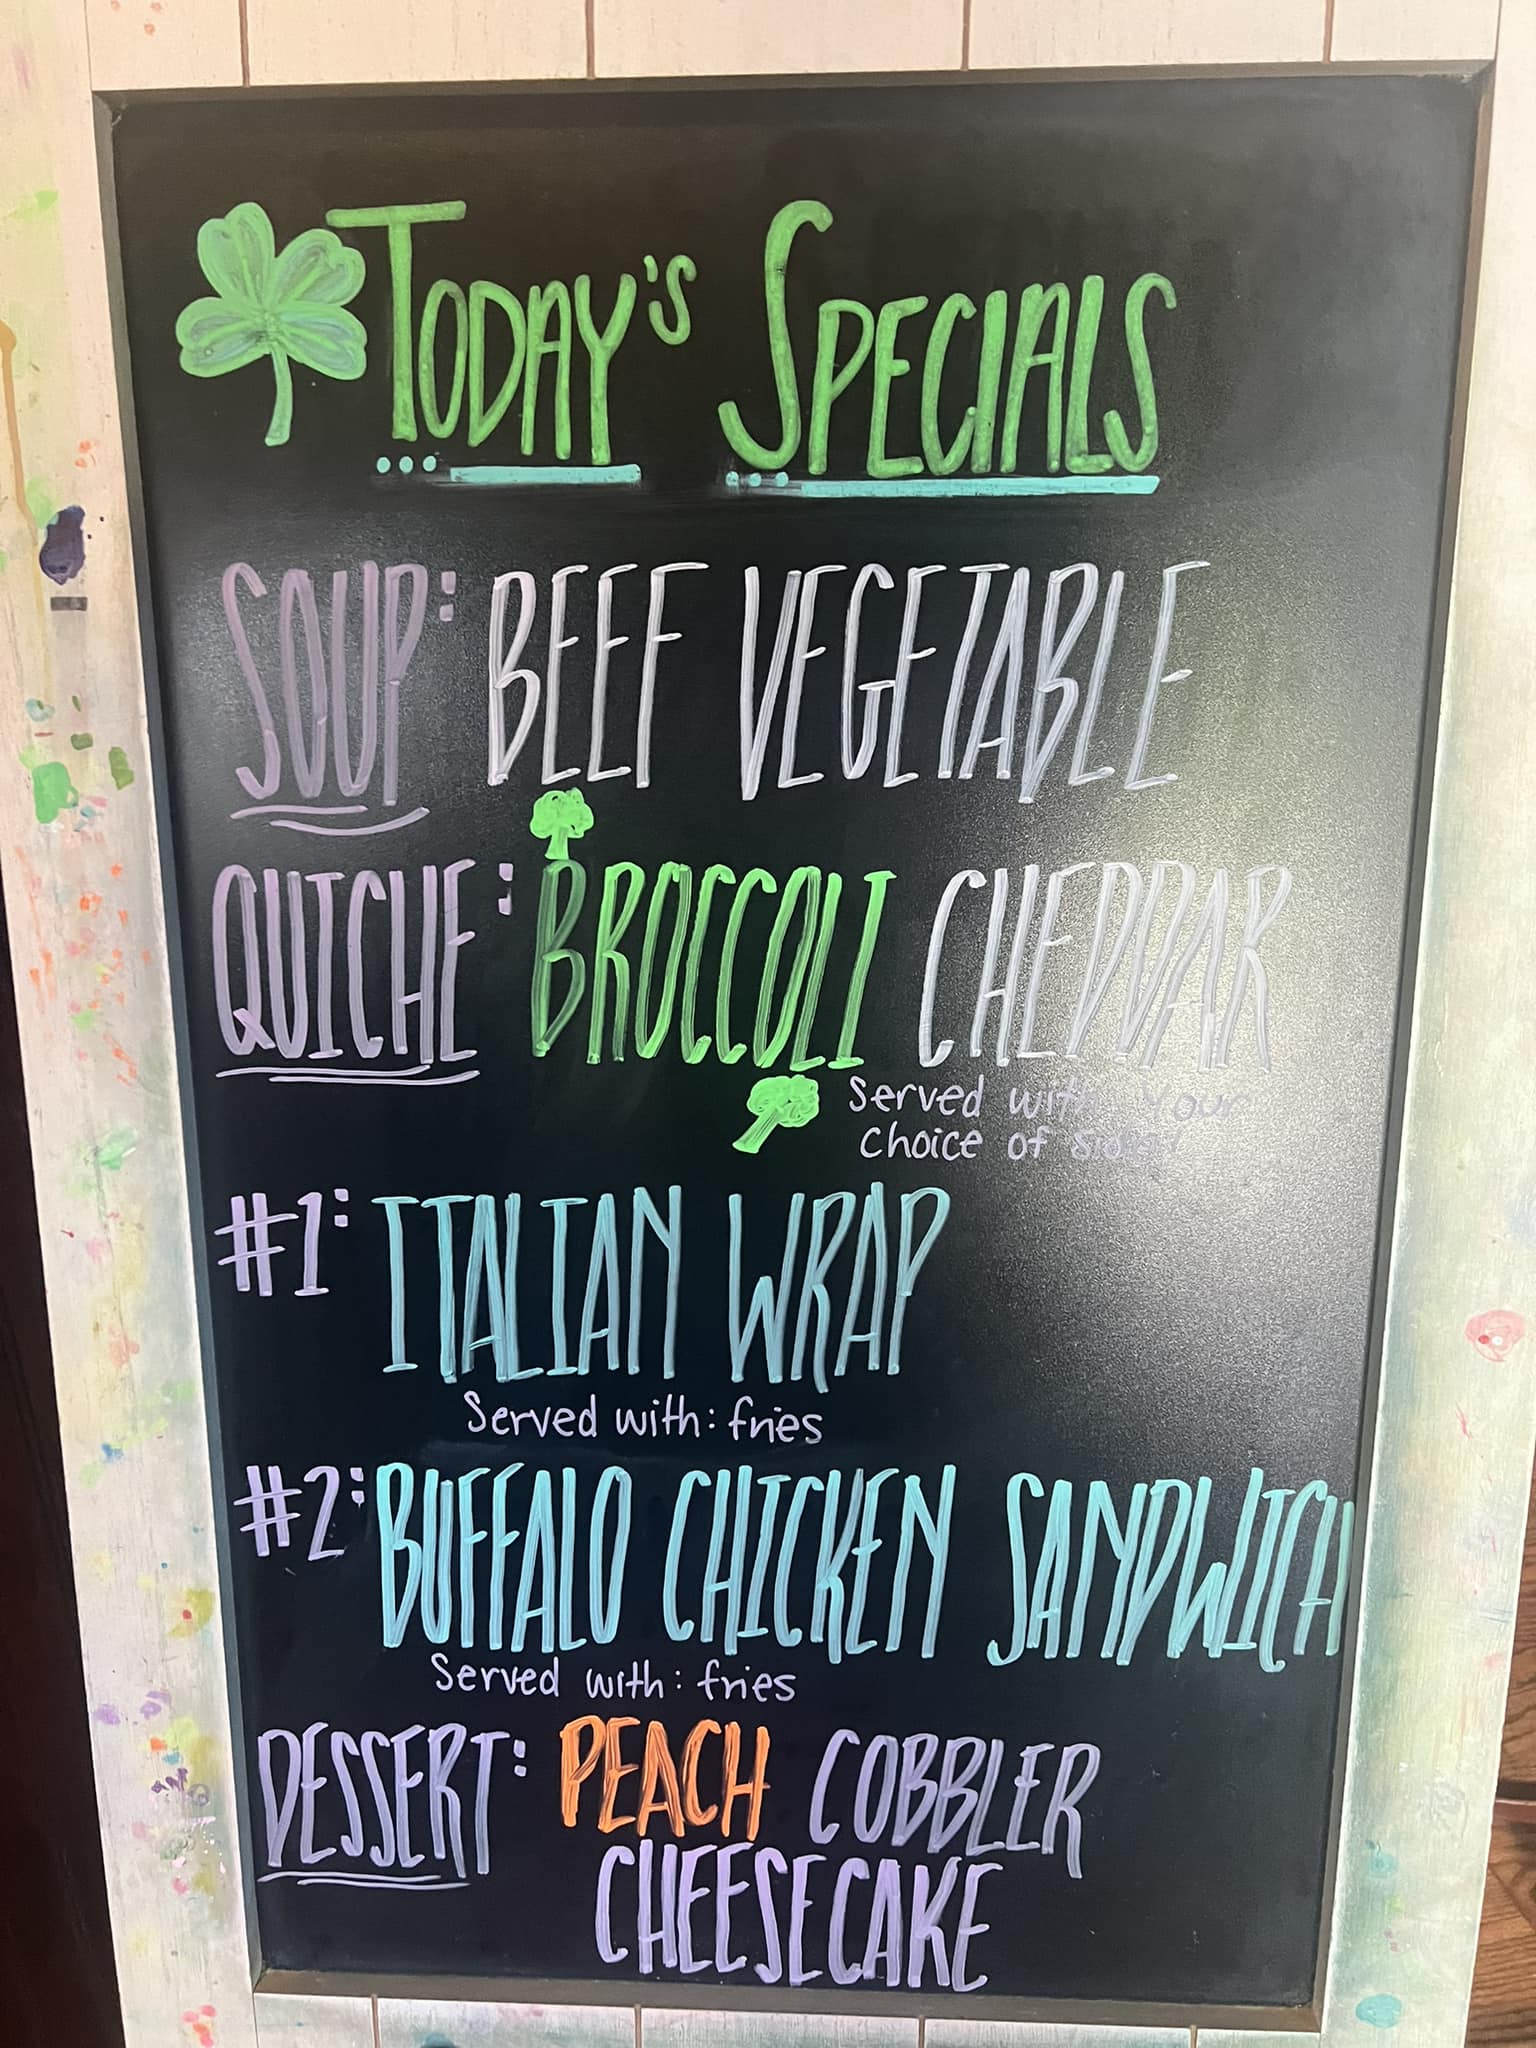 TODAY'S SPECIALS
SOUP: BEEF VEGETABLE
QUICHE: BROCCOLI CHEDDAR
Served with your
choice of side!
#1: ITALIAN WRAP
Served with: fries
#2: BUFFALO CHICKEN SANDWICH
Served with: fries
DESSERT: PEACH COBBLER
CHEESECAKE